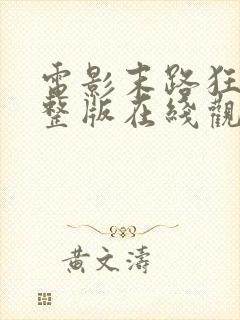 電影末路狂
整版在綫觀
黄文濤